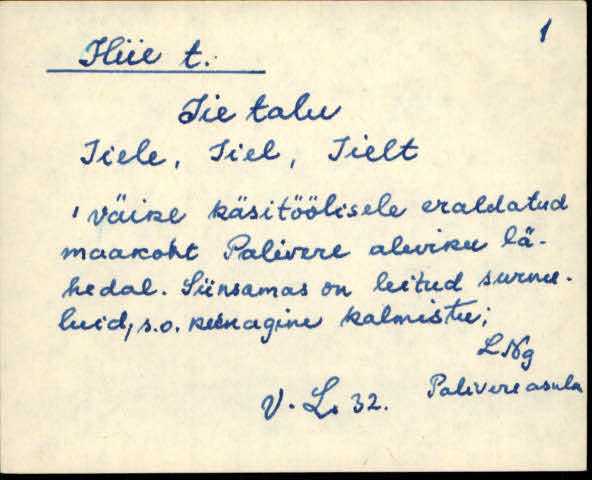 1
Hiie t.
Iie talu
Iiele, Iiel, Iielt
' väike käsitöölisele eraldatud
maakoht Palivere aleviku lä-
hedal. Siinsamas on leitud surnu-
luid, s.o. kunagine kalmistu;
LNg
V. L. 32.
Palivere asula